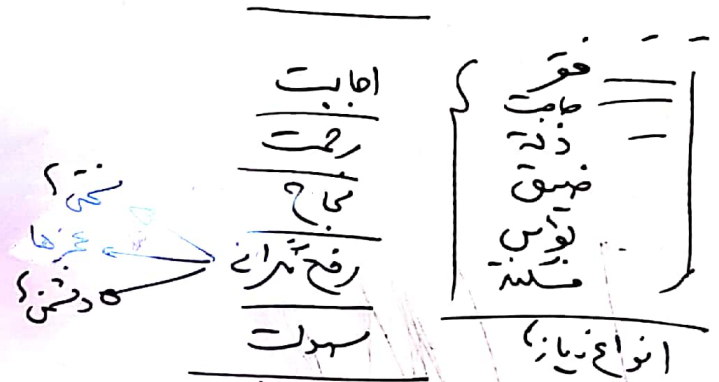 فقر
حاجت
ذلة
ضیق
مسکنة
انواع نیاز
اجابت
رحمت
نجاح
رفع نگرانی
سهولت
سختی؟
عجزها
دشمن؟